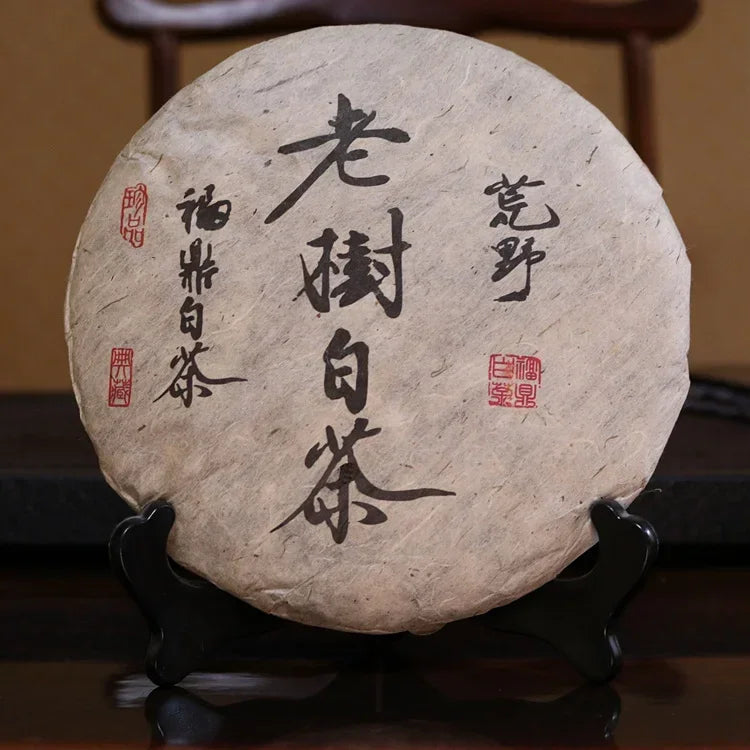 荒野
福鼎白茶
老樹白茶
珍品
福鼎白茶
典藏